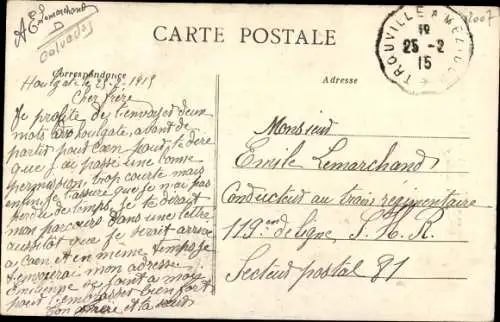 A E Lemarchand
D
Calvados
CARTE POSTALE
TROUVILLE A MEZIDON
18
25-2
15
Correspondance
Adresse
Houlgate le 25.2.1915
Cher frère
Je profite de t'envoyer deux
mots de Houlgate, avant de
partir pour Caen pour te dire
que j'ai passé une bonne
permission, trop courte mais
enfin je t'assure que je n'ai pas
perdu de temps, je te dirai
mon parcours dans une lettre
aussitôt que je serai arrivé
à Caen et en même temps je
t'enverrai mon adresse
de joint à moi
pour t'embrasser bien fort
ton frère et ta sœur
Monsieur
Emile Lemarchand
Conducteur au train régimentaire
119em de ligne, S. H. R.
Secteur postal 81